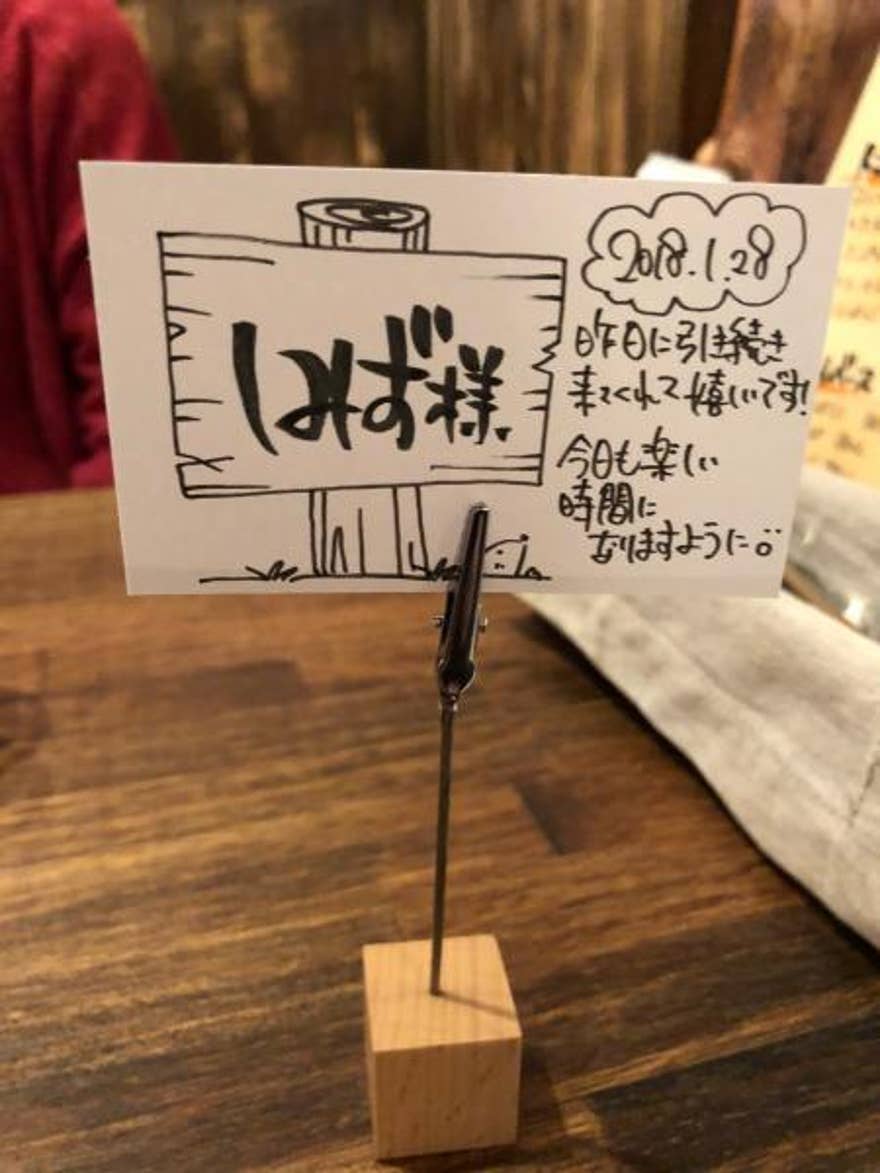 しみず様
2018.1.28
昨日に引き続き
来てくれて嬉しいです!
今日も楽しい
時間に
なりますように。